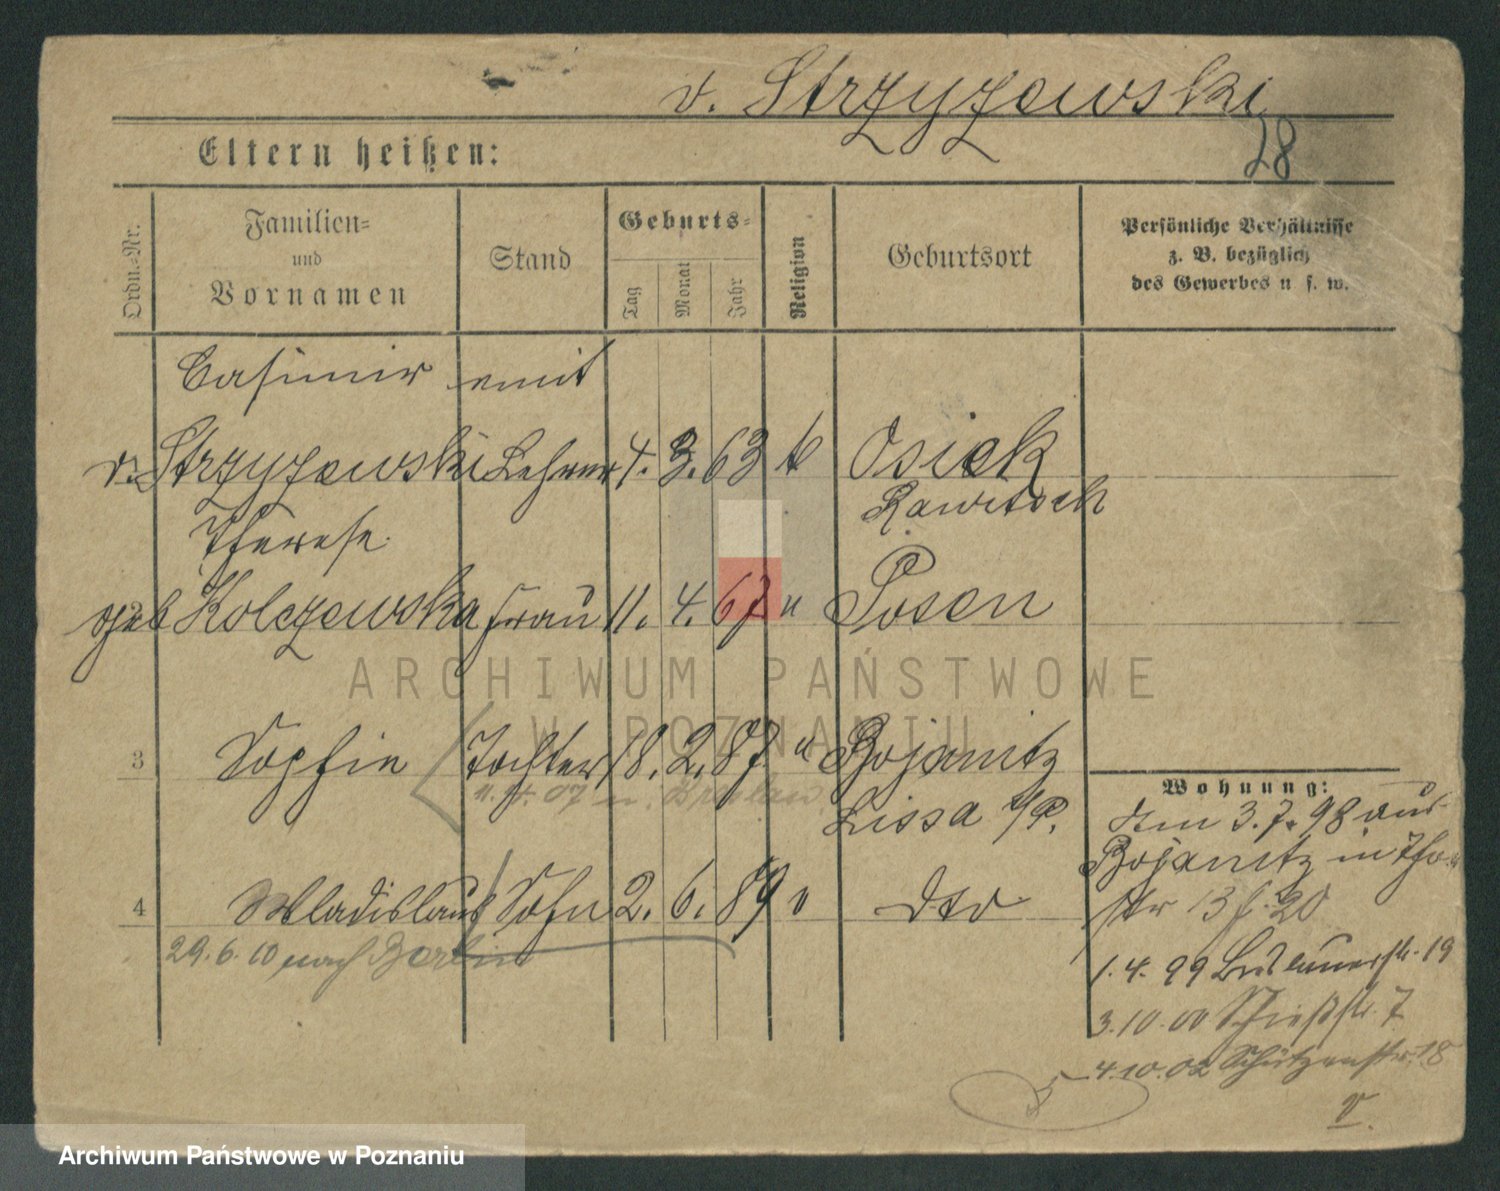 v. Strzyzewski
28
Eltern heißen:
Ordn.-Nr.
Familien-
und
Vornamen
Stand
Geburts-
Tag
Monat
Jahr
Religion
Geburtsort
Persönliche Verhältnisse
z. B. bezüglich
des Gewerbes u. s. w.
Casimir emit
v. Strzyzewski Lehrer 4. 3. 63 k Osiek
Rawitsch
Therese
geb Kolczewska Frau 11. 4. 67 " Posen
3 Sophie Tochter 18. 2. 87 " Bojanitz
07 n. Breslau
Lissa i/P.
4 Wladislaus Sohn 2. 6. 89 " dto
29. 6. 10 nach Berlin
Wohnung:
Am 3. 7. 98 aus
Bojanitz in
str 13 20
1. 4. 99 19
3. 10. 00 Schießstr. 7
4. 10. 02 Schützenstr. 18
v.
ARCHIWUM PAŃSTWOWE
W POZNANIU
Archiwum Państwowe w Poznaniu